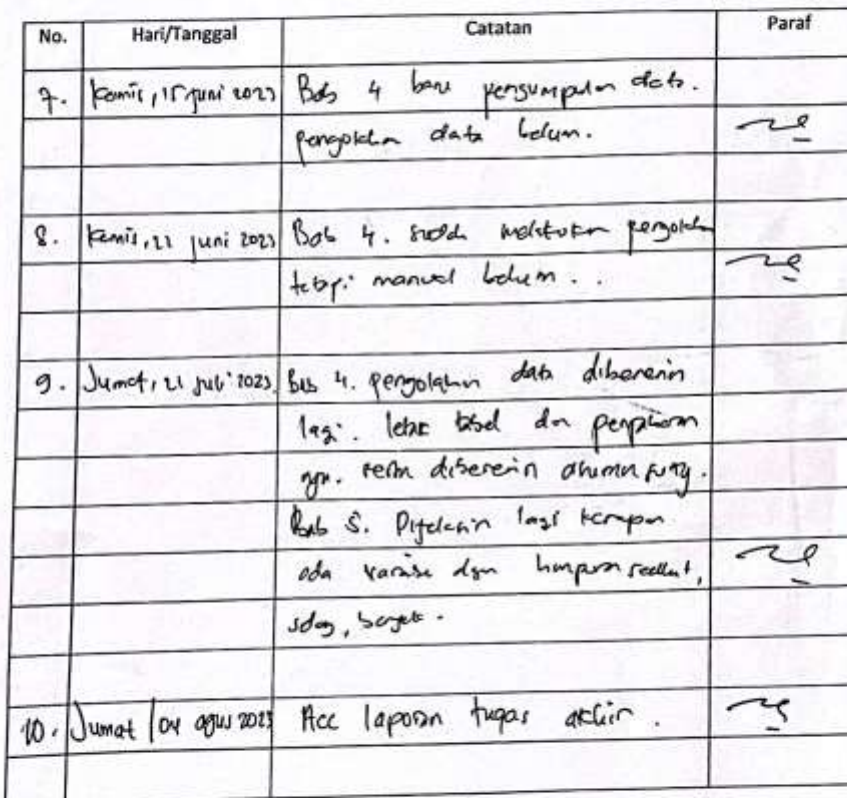 No. Hari/Tanggal Catatan Paraf
7. Kamis, 15 juni 2023 Bab 4 baru pengumpulan data.
pengolahan data belum.
8. Kamis, 22 juni 2023 Bab 4. sudah melakukan pengolahan
tetapi manual belum . .
9. Jumat, 21 juli 2023. Bab 4. pengolahan data dibenerin
lagi. letak tabel dan
dibenerin
Bab 5. Dijelasin lagi kenapa
ada
10. Jumat / 04 agus 2023 Acc laporan tugas akhir .